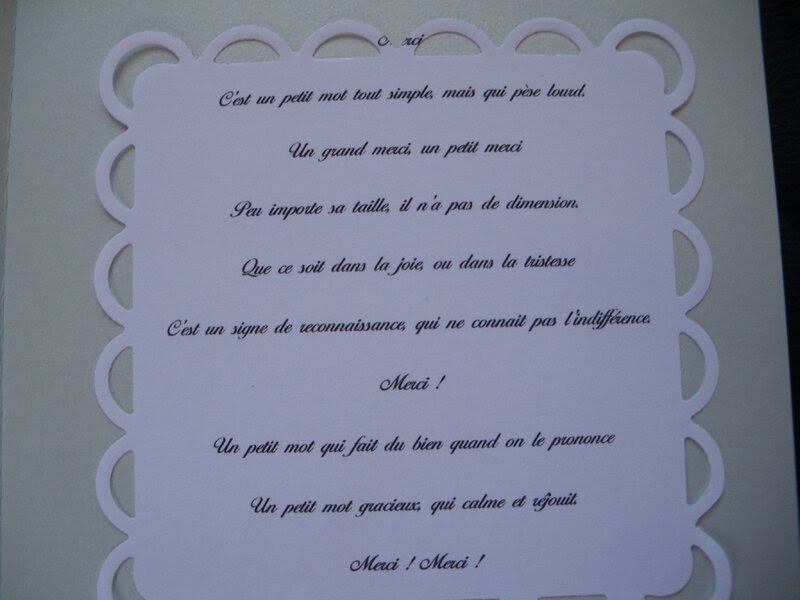 C'est un petit mot tout simple, mais qui pèse lourd.
Un grand merci, un petit merci
Peu importe sa taille, il n'a pas de dimension.
Que ce soit dans la joie, ou dans la tristesse
C'est un signe de reconnaissance, qui ne connait pas l'indifférence.
Merci !
Un petit mot qui fait du bien quand on le prononce
Un petit mot gracieux, qui calme et réjouit.
Merci ! Merci !